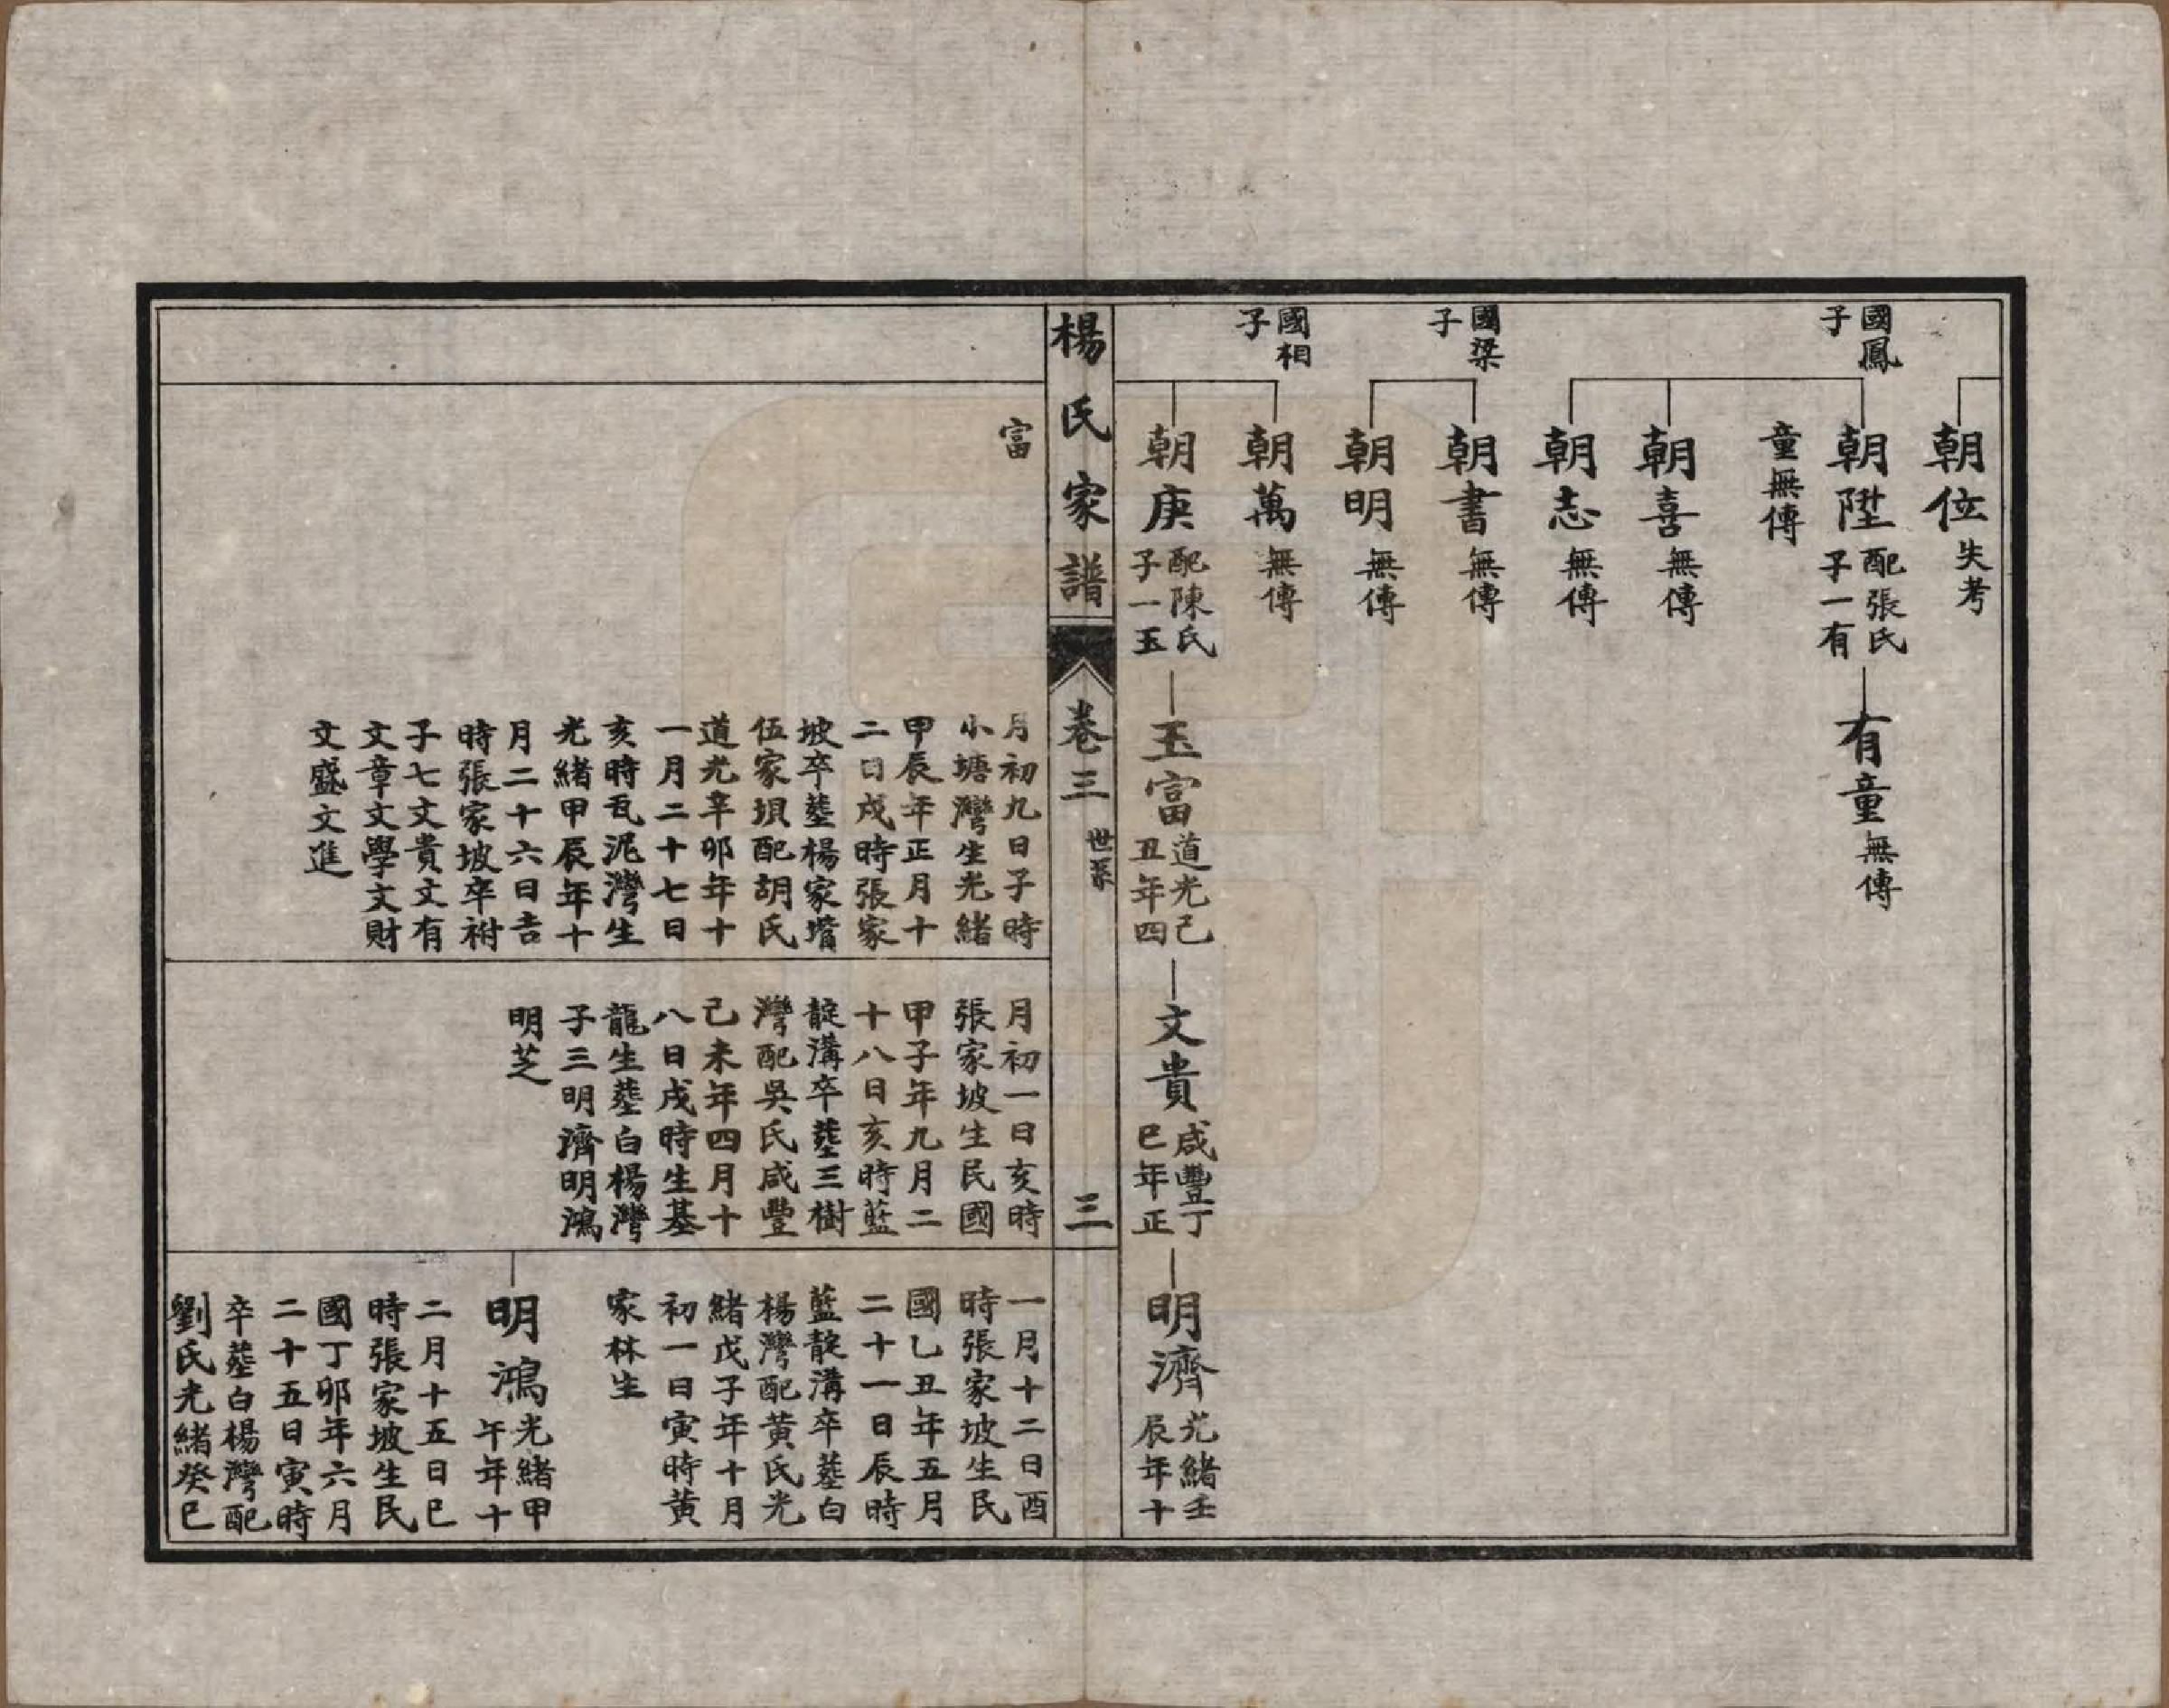 朝位 失考
國鳳
子
朝陞 配張氏
子一有
童無傳
有童 無傳
朝喜 無傳
朝志 無傳
國梁
子
朝書 無傳
朝明 無傳
國相
子
朝萬 無傳
朝庚 配陳氏
子一玉
玉富 道光己
丑年四
文貴 咸豐丁
巳年正
明濟 光緒壬
辰年十
楊氏家譜
卷三 世系
三
富
月初九日子時
小塘灣生光緒
甲辰年正月十
二日戌時張家
坡卒塟楊家嘴
伍家垻配胡氏
道光辛卯年十
一月二十七日
亥時瓦泥灣生
光緒甲辰年十
月二十六日吉
時張家坡卒祔
子七文貴文有
文章文學文財
文盛文進
月初一日亥時
張家坡生民國
甲子年九月二
十八日亥時藍
靛溝卒塟三樹
灣配吳氏咸豐
己未年四月十
八日戌時生基
龍生塟白楊灣
子三明濟明鴻
明芝
一月十二日酉
時張家坡生民
國乙丑年五月
二十一日辰時
藍靛溝卒塟白
楊灣配黃氏光
緒戊子年十月
初一日寅時黃
家林生
明鴻 光緒甲
午年十
二月十五日巳
時張家坡生民
國丁卯年六月
二十五日寅時
卒塟白楊灣配
劉氏光緒癸巳